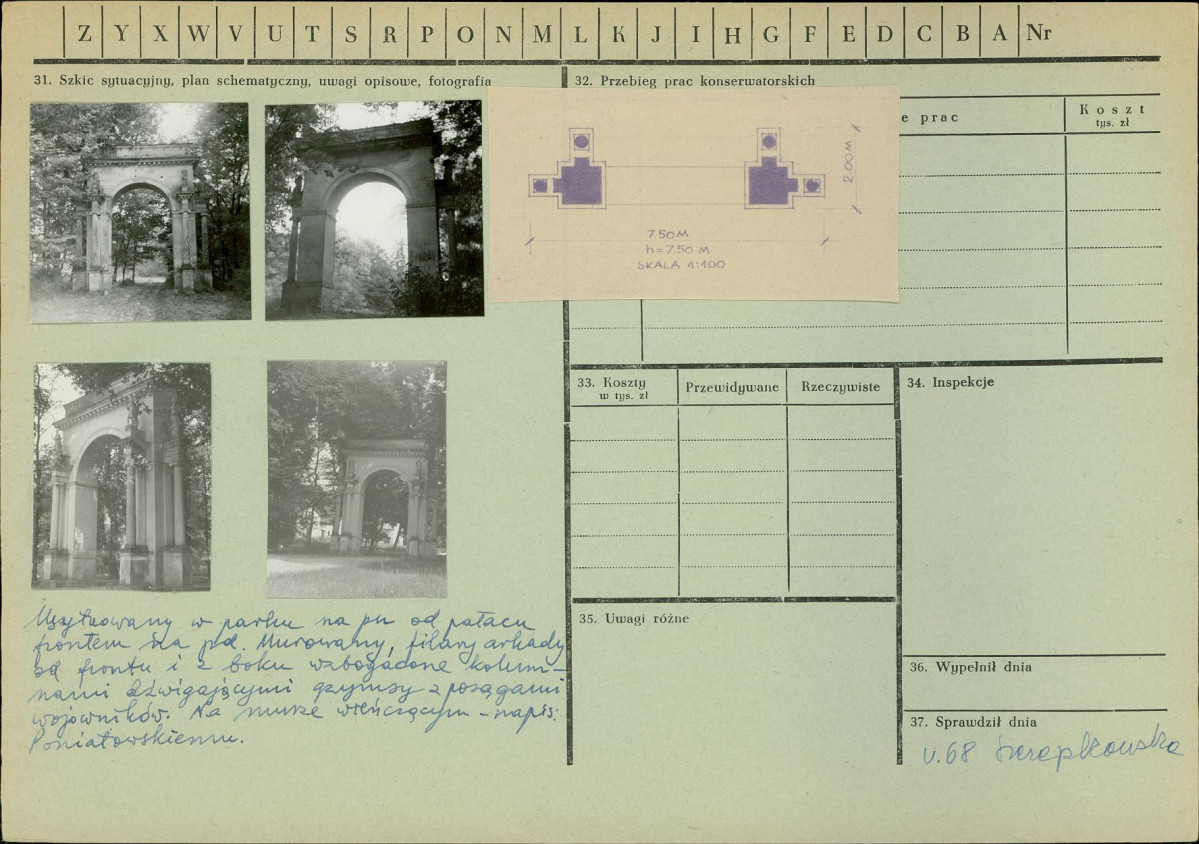 Z Y X W V U T S R P O N M L K J I H G F E D C B A Nr
31. Szkic sytuacyjny, plan schematyczny, uwagi opisowe, fotografia
32. Przebieg prac konserwatorskich
e prac
Koszt
tys. zł
2.00M
7.50M
h=7.50 M
SKALA 1:100
33. Koszty
w tys. zł
Przewidywane
Rzeczywiste
34. Inspekcje
Usytuowany w parku na pn od pałacu
frontem na pd. Murowany, filary arkady
od frontu i z boku wzbogacone kolum-
nami dźwigającymi gzymsy z posągami
wojowników. Na murze wieńczącym - napis:
Poniatowskiemu.
35. Uwagi różne
36. Wypełnił dnia
37. Sprawdził dnia
V.68